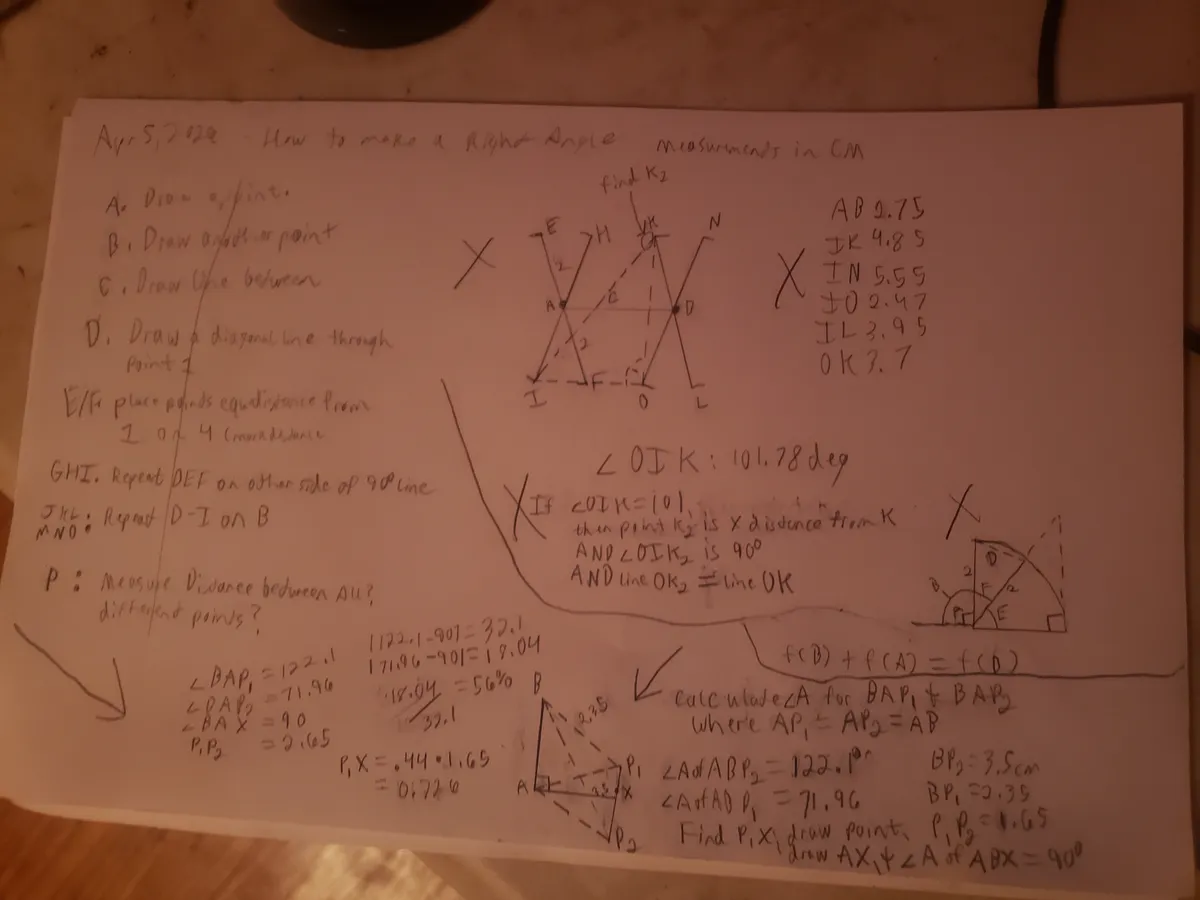 Apr 5, 2024 - How to make a Right Angle measurements in CM
A. Draw a point.
B. Draw another point
C. Draw line between
D. Draw a diagonal line through
point 1
E/F: place points equidistance from
1 or 4 cm
GHI. Repeat DEF on other side of 90° line
JKL:
MNO: Repeat D-I on B
P: Measure Distance between All?
different points?
find K2
E
H
K
N
2
A
C
D
2
I
F
O
L
X
X
AB 2.75
IK 4.85
IN 5.55
IO 2.47
IL 3.95
OK 3.7
∠OIK: 101.78 deg
X If ∠OIK = 101,
then point K2 is X distance from K
AND ∠OIK2 is 90°
AND line OK2 = line OK
X
D
2
B
F
2
E
f(B) + f(A) = f(D)
∠BAP1 = 122.1
∠BAP2 = 71.96
∠BAX = 90
P1P2 = 2.65
|122.1-90| = 32.1
|71.96-90| = 18.04
18.04
32.1
= 56%
P1X = .44 • 1.65
= 0.726
B
2.35
P1
A
X
P2
calculate ∠A for BAP1 & BAP2
where AP1 = AP2 = AB
∠A of ABP2 = 122.1
∠A of ABP1 = 71.96
BP2 = 3.5cm
BP1 = 2.35
P1P2 = 1.65
Find P1X, draw point,
draw AX, & ∠A of ABX = 90°